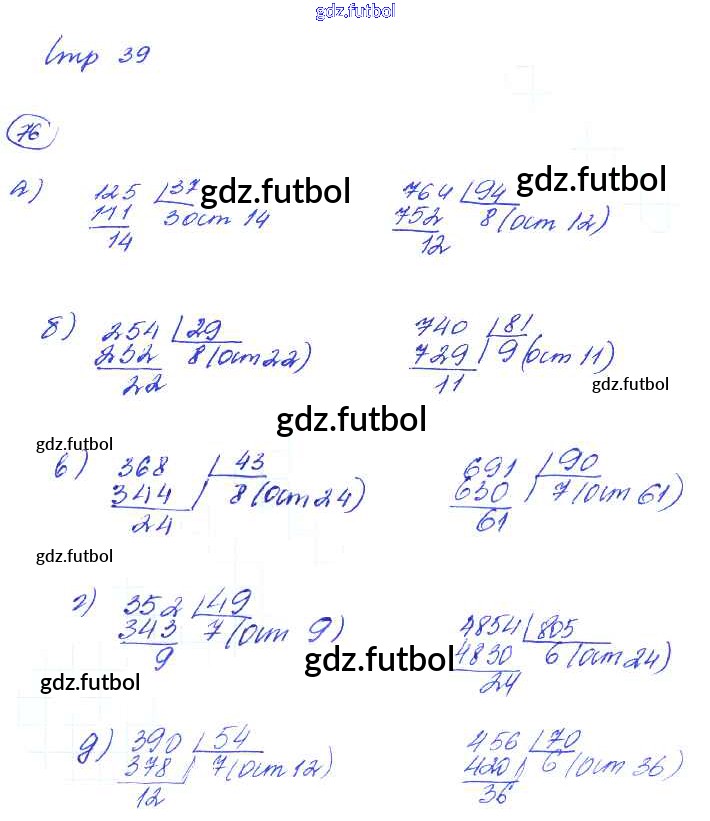 gdz.futbol
стр 39
76
а) 125 37 gdz.futbol 764 94 gdz.futbol
111 3 ост 14 752 8 (ост 12)
14 12
б) 254 29 740 81
232 8 (ост 22) 729 9 (ост 11)
22 11 gdz.futbol
gdz.futbol
gdz.futbol
в) 368 43 691 90
344 8 (ост 24) 630 7 (ост 61)
24 61
gdz.futbol
г) 352 49 4854 805
343 7 (ост 9) 4830 6 (ост 24)
9 gdz.futbol 24
gdz.futbol
д) 390 54 456 70
378 7 (ост 12) 420 6 (ост 36)
12 36